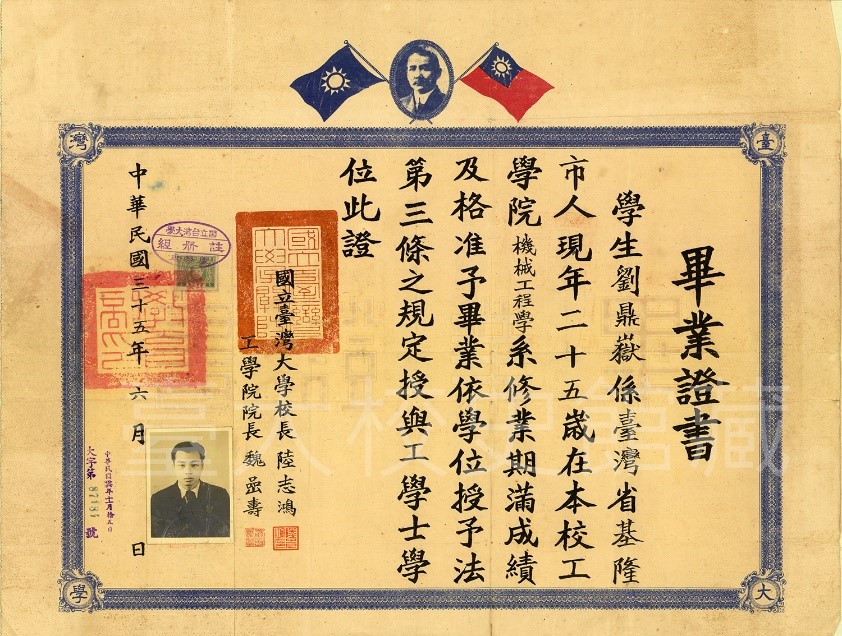 臺
灣
大
學
畢業證書
學生劉鼎嶽係臺灣省基隆
市人現年二十五歲在本校工
學院機械工程學系修業期滿成績
及格准予畢業依學位授予法
第三條之規定授與工學士學
位此證
國立臺灣大學校長 陸志鴻
工學院院長 魏嵒壽
中華民國三十五年 六月 日
國立台湾大學
註冊組
大字第 號
臺大校史館藏